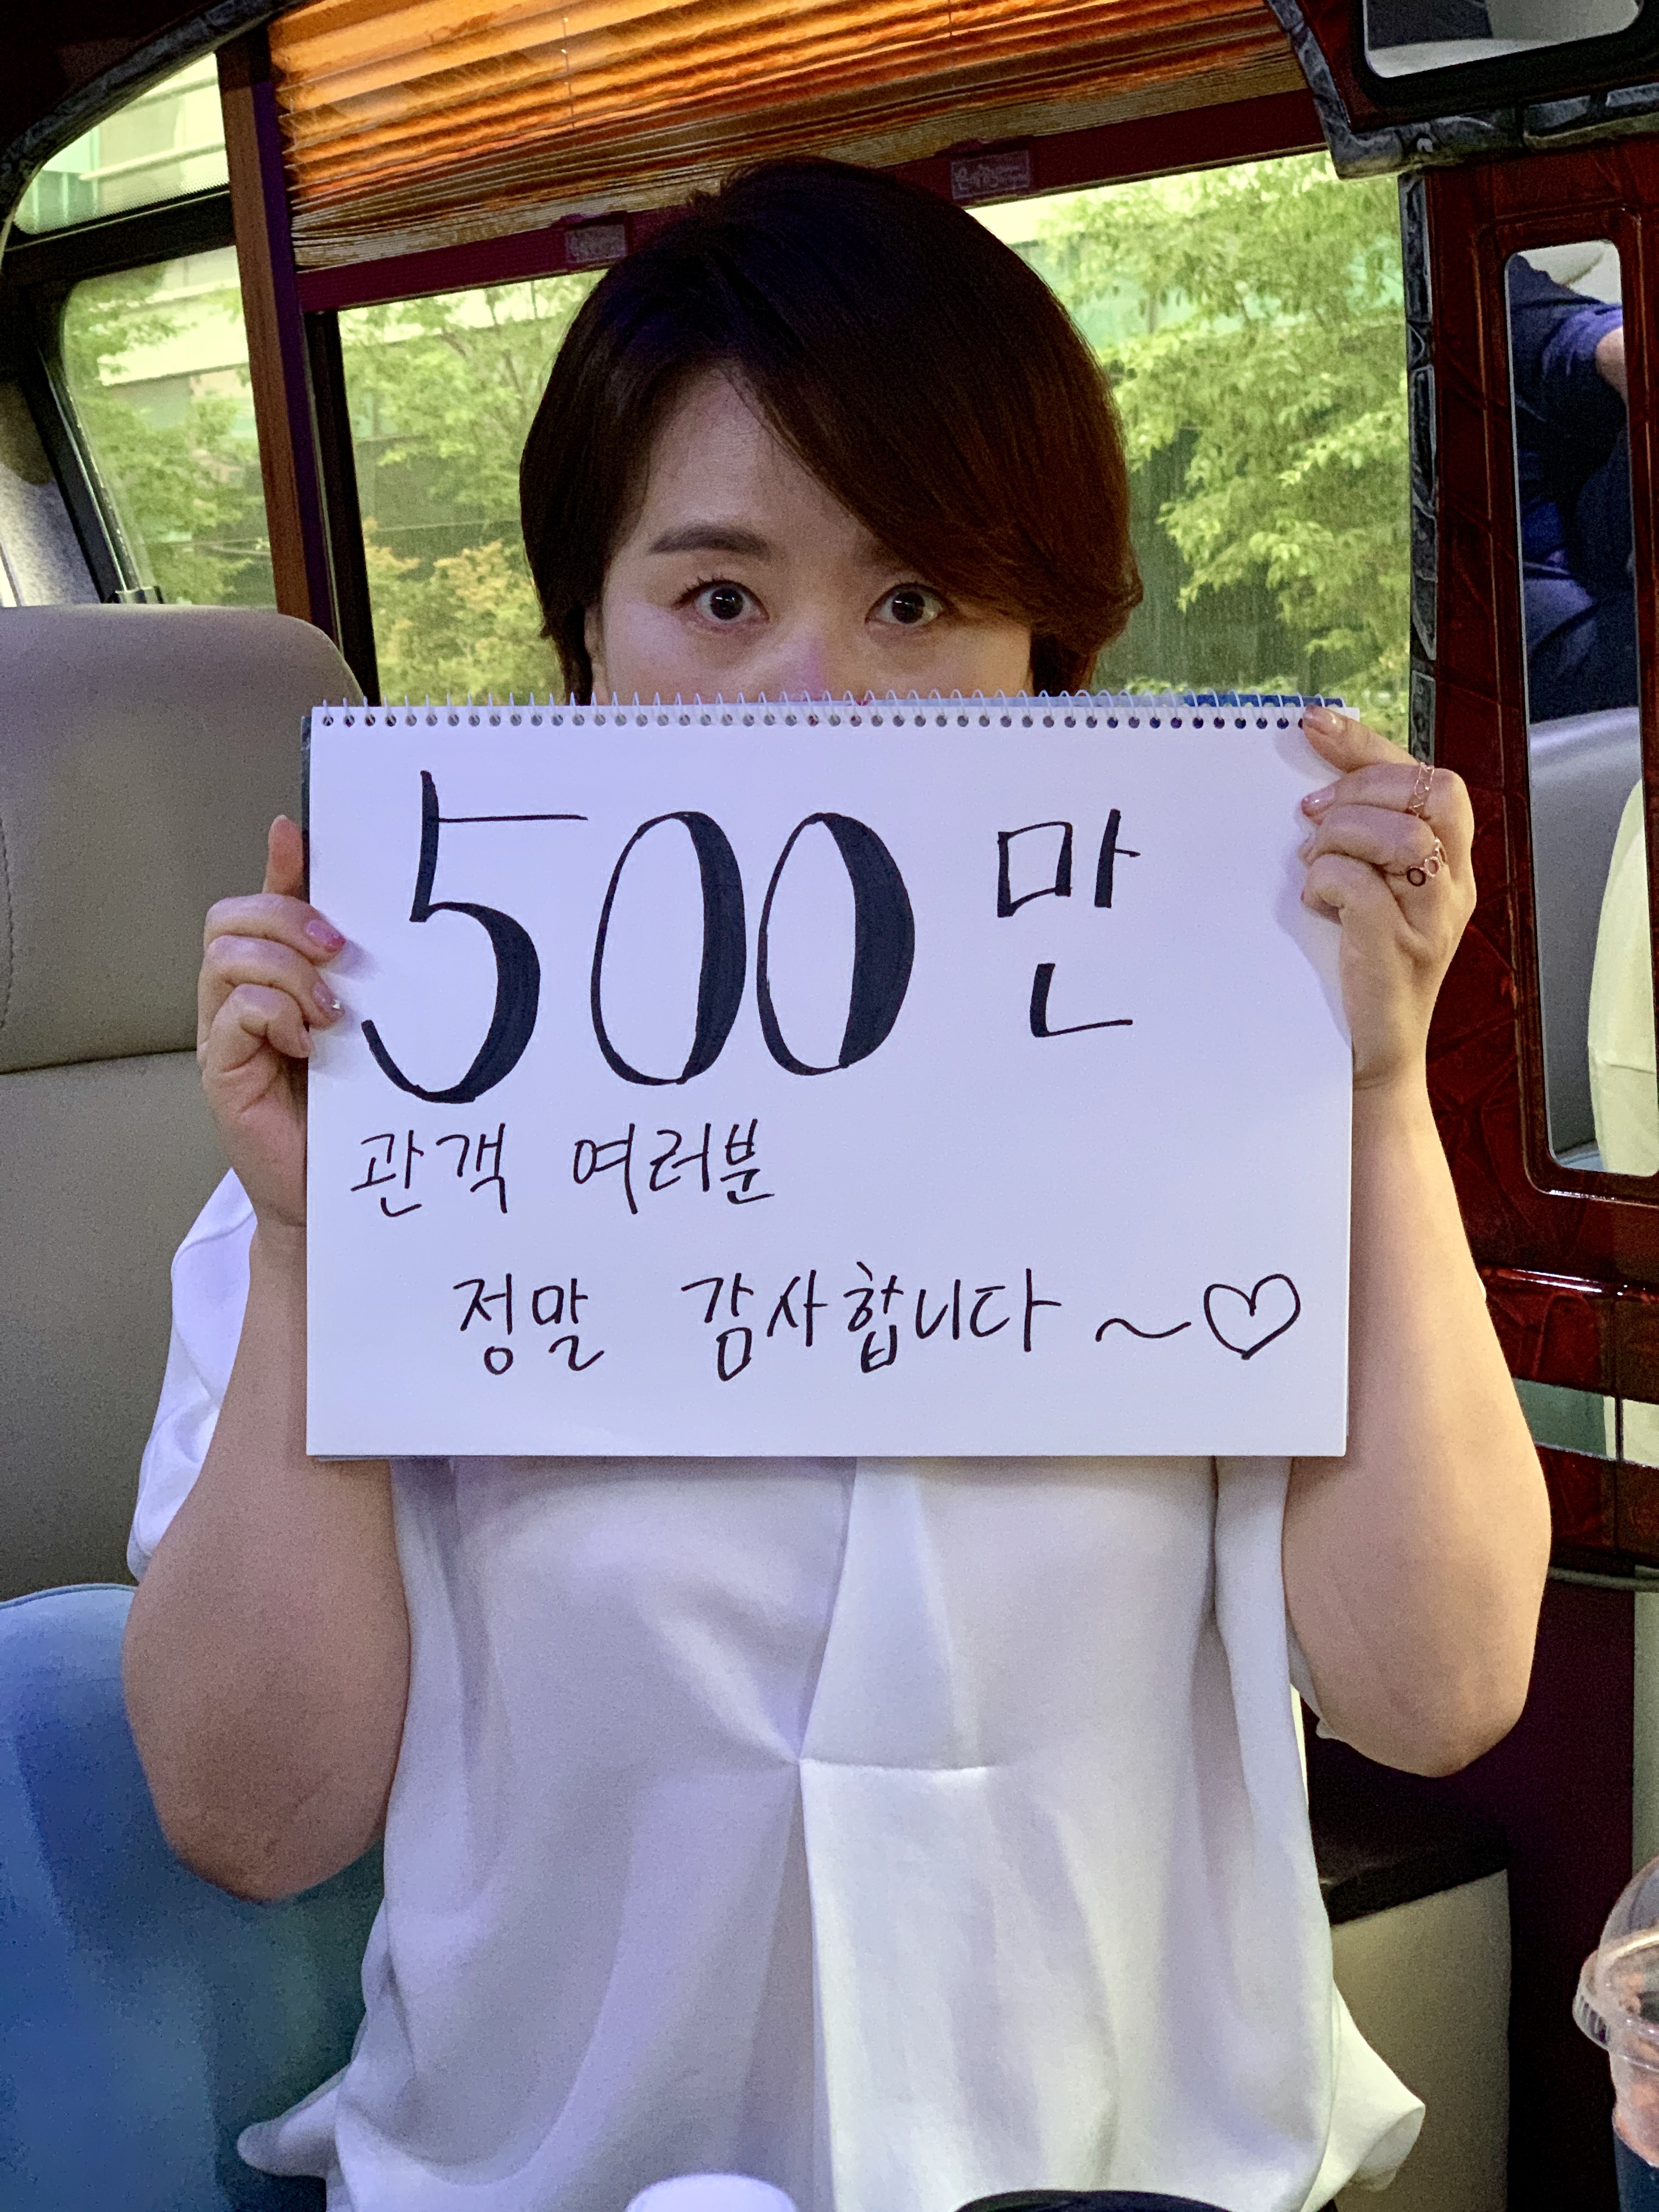 500만
관객 여러분
정말 감사합니다~♡